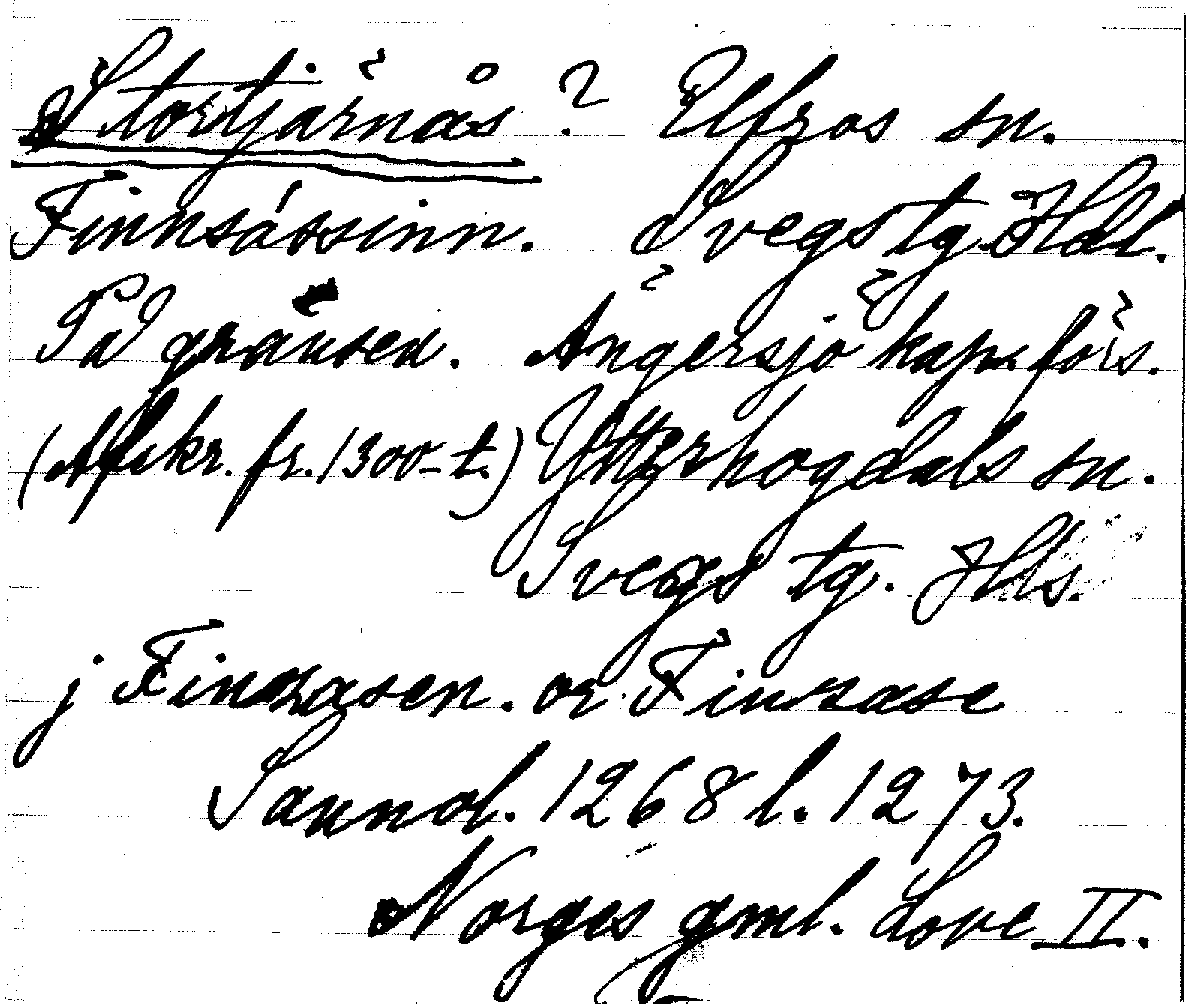 Stortjärnås? Elfros sn.
Finnsåssinn. Svegs tg. Hdl.
På gränsen. Ängersjö kap. förs.
(Afskr. fr. 1300-t.) Ytterhogdals sn.
Svegs tg. Hls.
j Finnzasen. or Finzase
Sannol. 1268 l. 1273.
Norges gml. Love II.